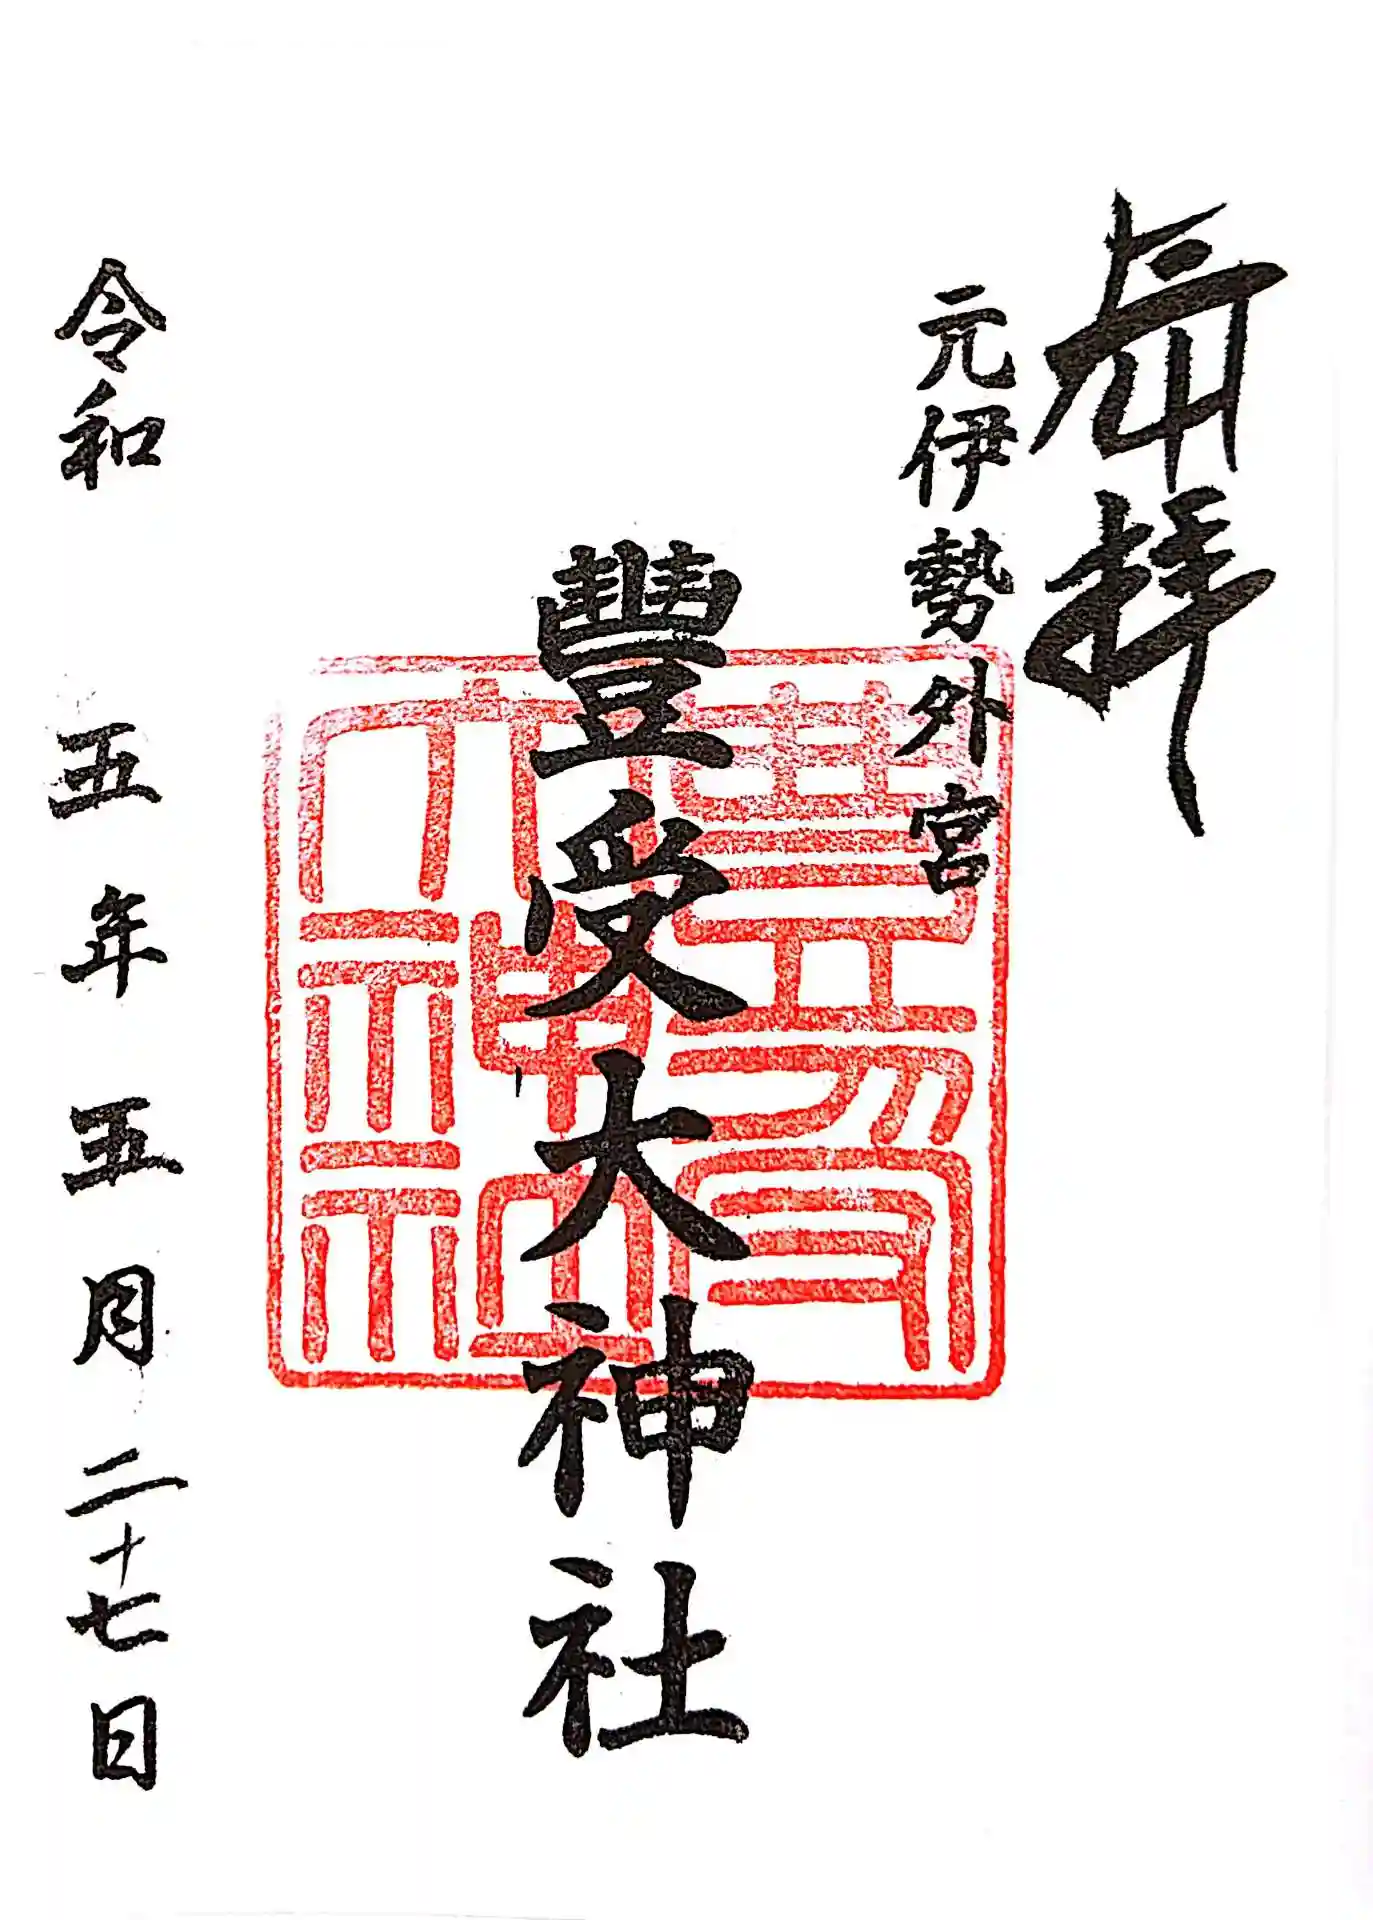 拝
元伊勢外宮
豐受大神社
豐受
大神社
令和五年五月二十七日